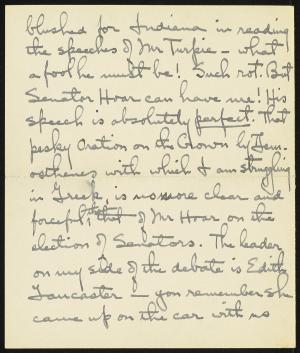 blushed for Indiana in reading
the speeches of Mr Turpie - what
a fool he must be! Such rot. But
Senator Hoar can have me! His
speech is absolutely perfect. That
pesky Oration on the Crown by Dem-
osthenes with which I am struggling
in Greek, is no more clear and
forceful, than that of Mr Hoar on the
election of Senators. The leader
on my side of the debate is Edith
Lancaster - you remember she
came up on the car with us